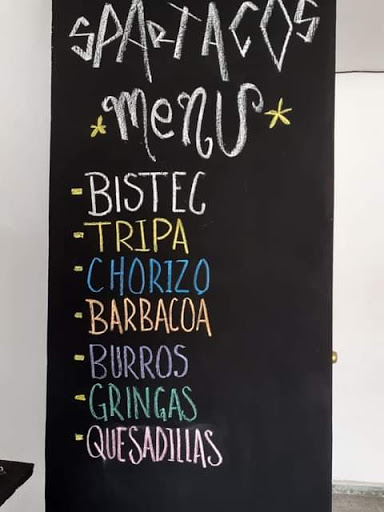 SPARTACOS
menu
- BISTEC
- TRIPA
- CHORIZO
- BARBACOA
- BURROS
- GRINGAS
- QUESADILLAS